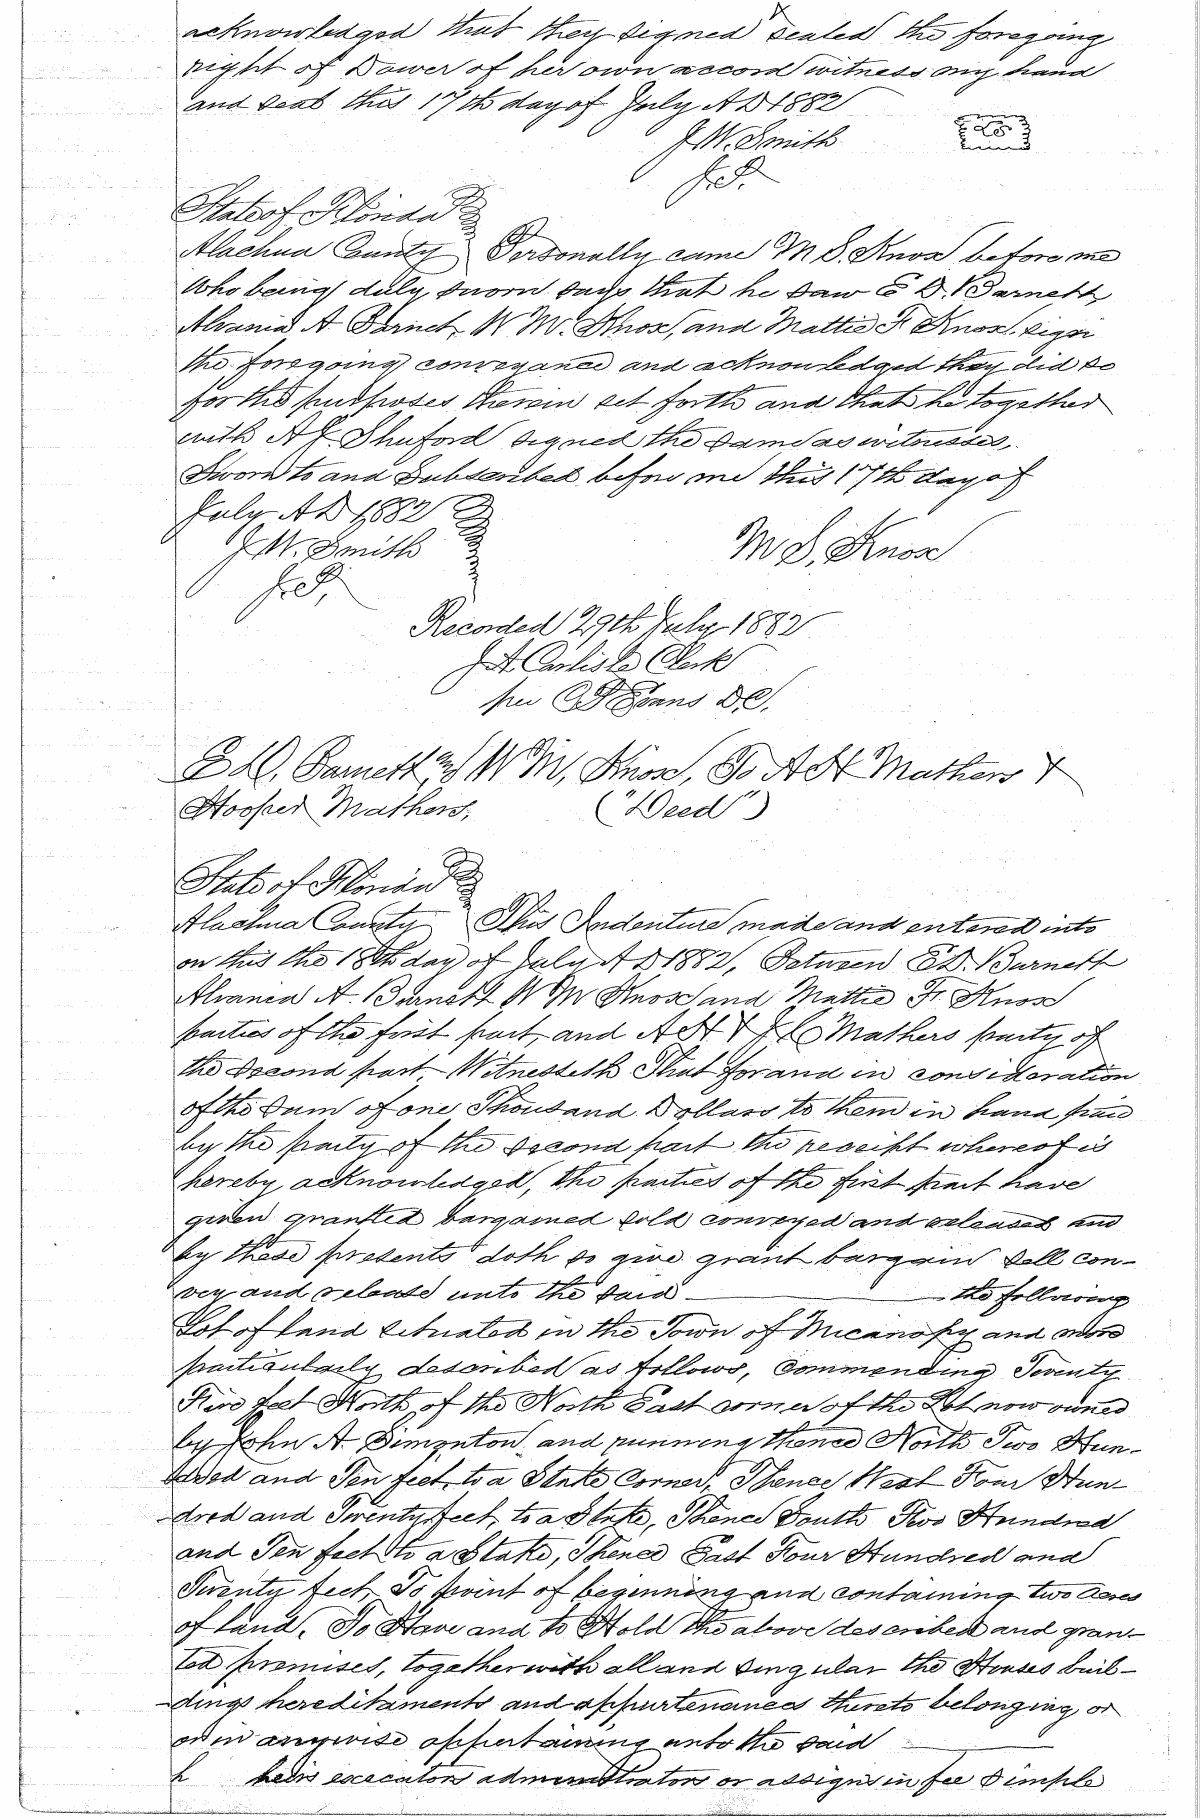 acknowledged that they signed & sealed the foregoing
right of Dower of her own accord witness my hand
and seal this 17th day of July AD 1882
J.W. Smith
J.P.
State of Florida
Alachua County Personally came M S. Knox before me
Who being duly sworn says that he saw E D. Barnett
Alvania A Barnet, W M. Knox, and Mattie F Knox sign
the foregoing conveyance and acknowledged they did so
for the purposes therein set forth and that he together
with A J Shuford signed the same as witnesses.
Sworn to and Subscribed before me this 17th day of
July AD 1882
J.W. Smith
M S, Knox
J.P,
Recorded 29th July 1882
J A Carlisle Clerk
per Evans D.C.
E D. Barnett and W M, Knox, To A H Mathers &
Hooper Mathers, ("Deed")
State of Florida
Alachua County This Indenture made and entered into
on this the 18th day of July AD 1882, Between E D. Barnett
Alvania A. Barnett W M Knox and Mattie F. Knox
parties of the first part, and A H & Mathers party of
the second part, Witnesseth That for and in consideration
of the sum of one Thousand Dollars to them in hand paid
by the party of the second part the receipt whereof is
hereby acknowledged, the parties of the first part have
given granted bargained sold conveyed and released and
by these presents doth so give grant bargain sell con-
vey and release unto the said the following
Lot of land situated in the Town of Micanopy and more
particularly described as follows, commencing Twenty
Five feet North of the North East corner of the Lot now owned
by John A. Simonton and running thence North Two Hun-
dred and Ten feet, to a Stake Corner, Thence West Four Hun-
dred and Twenty feet, to a Stake, Thence South Two Hundred
and Ten feet to a Stake, Thence East Four Hundred and
Twenty feet, To point of beginning and containing two acres
of land. To Have and to Hold the above described and gran-
ted premises, together with all and singular the Houses buil-
dings hereditaments and appurtenances thereto belonging or
or in anywise appertaining unto the said
h heirs executors administrators or assigns in fee Simple